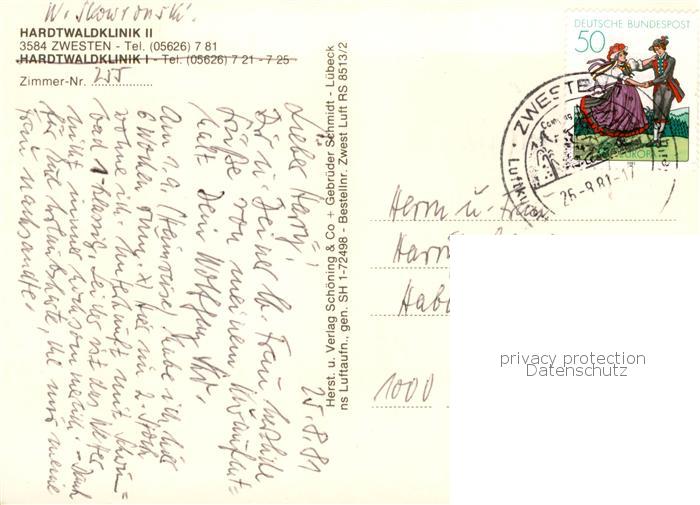 W. Skowronski.
HARDTWALDKLINIK II
3584 ZWESTEN - Tel. (05626) 7 81
HARDTWALDKLINIK I - Tel. (05626) 7 21 - 7 25
Zimmer-Nr. 255
25.8.81
Lieber Harry,
Dir u. Deiner lb. Frau herzliche
Grüße von meinem Kuraufent=
halt Dein Wolfgang
Am 1.9. (Heimreise) habe ich hier
6 Wochen rum. Hier im 2. Stock
wohne ich. Unterkunft mit Schwimm=
bad 1-klassig. Leider ist das Wetter
nicht immer. Dank
für Eure Urlaubskarte, die mir meine
Frau nachsandte.
Herst. u. Verlag Schöning & Co + Gebrüder Schmidt - Lübeck
ns Luftaufn., gen. SH 1-72498 - Bestellnr. Zwest Luft RS 8513/2
DEUTSCHE BUNDESPOST
50
EUROPA
ZWESTEN
Luftkur
26.-8.81-17
Herrn u. Frau
1000
privacy protection
Datenschutz